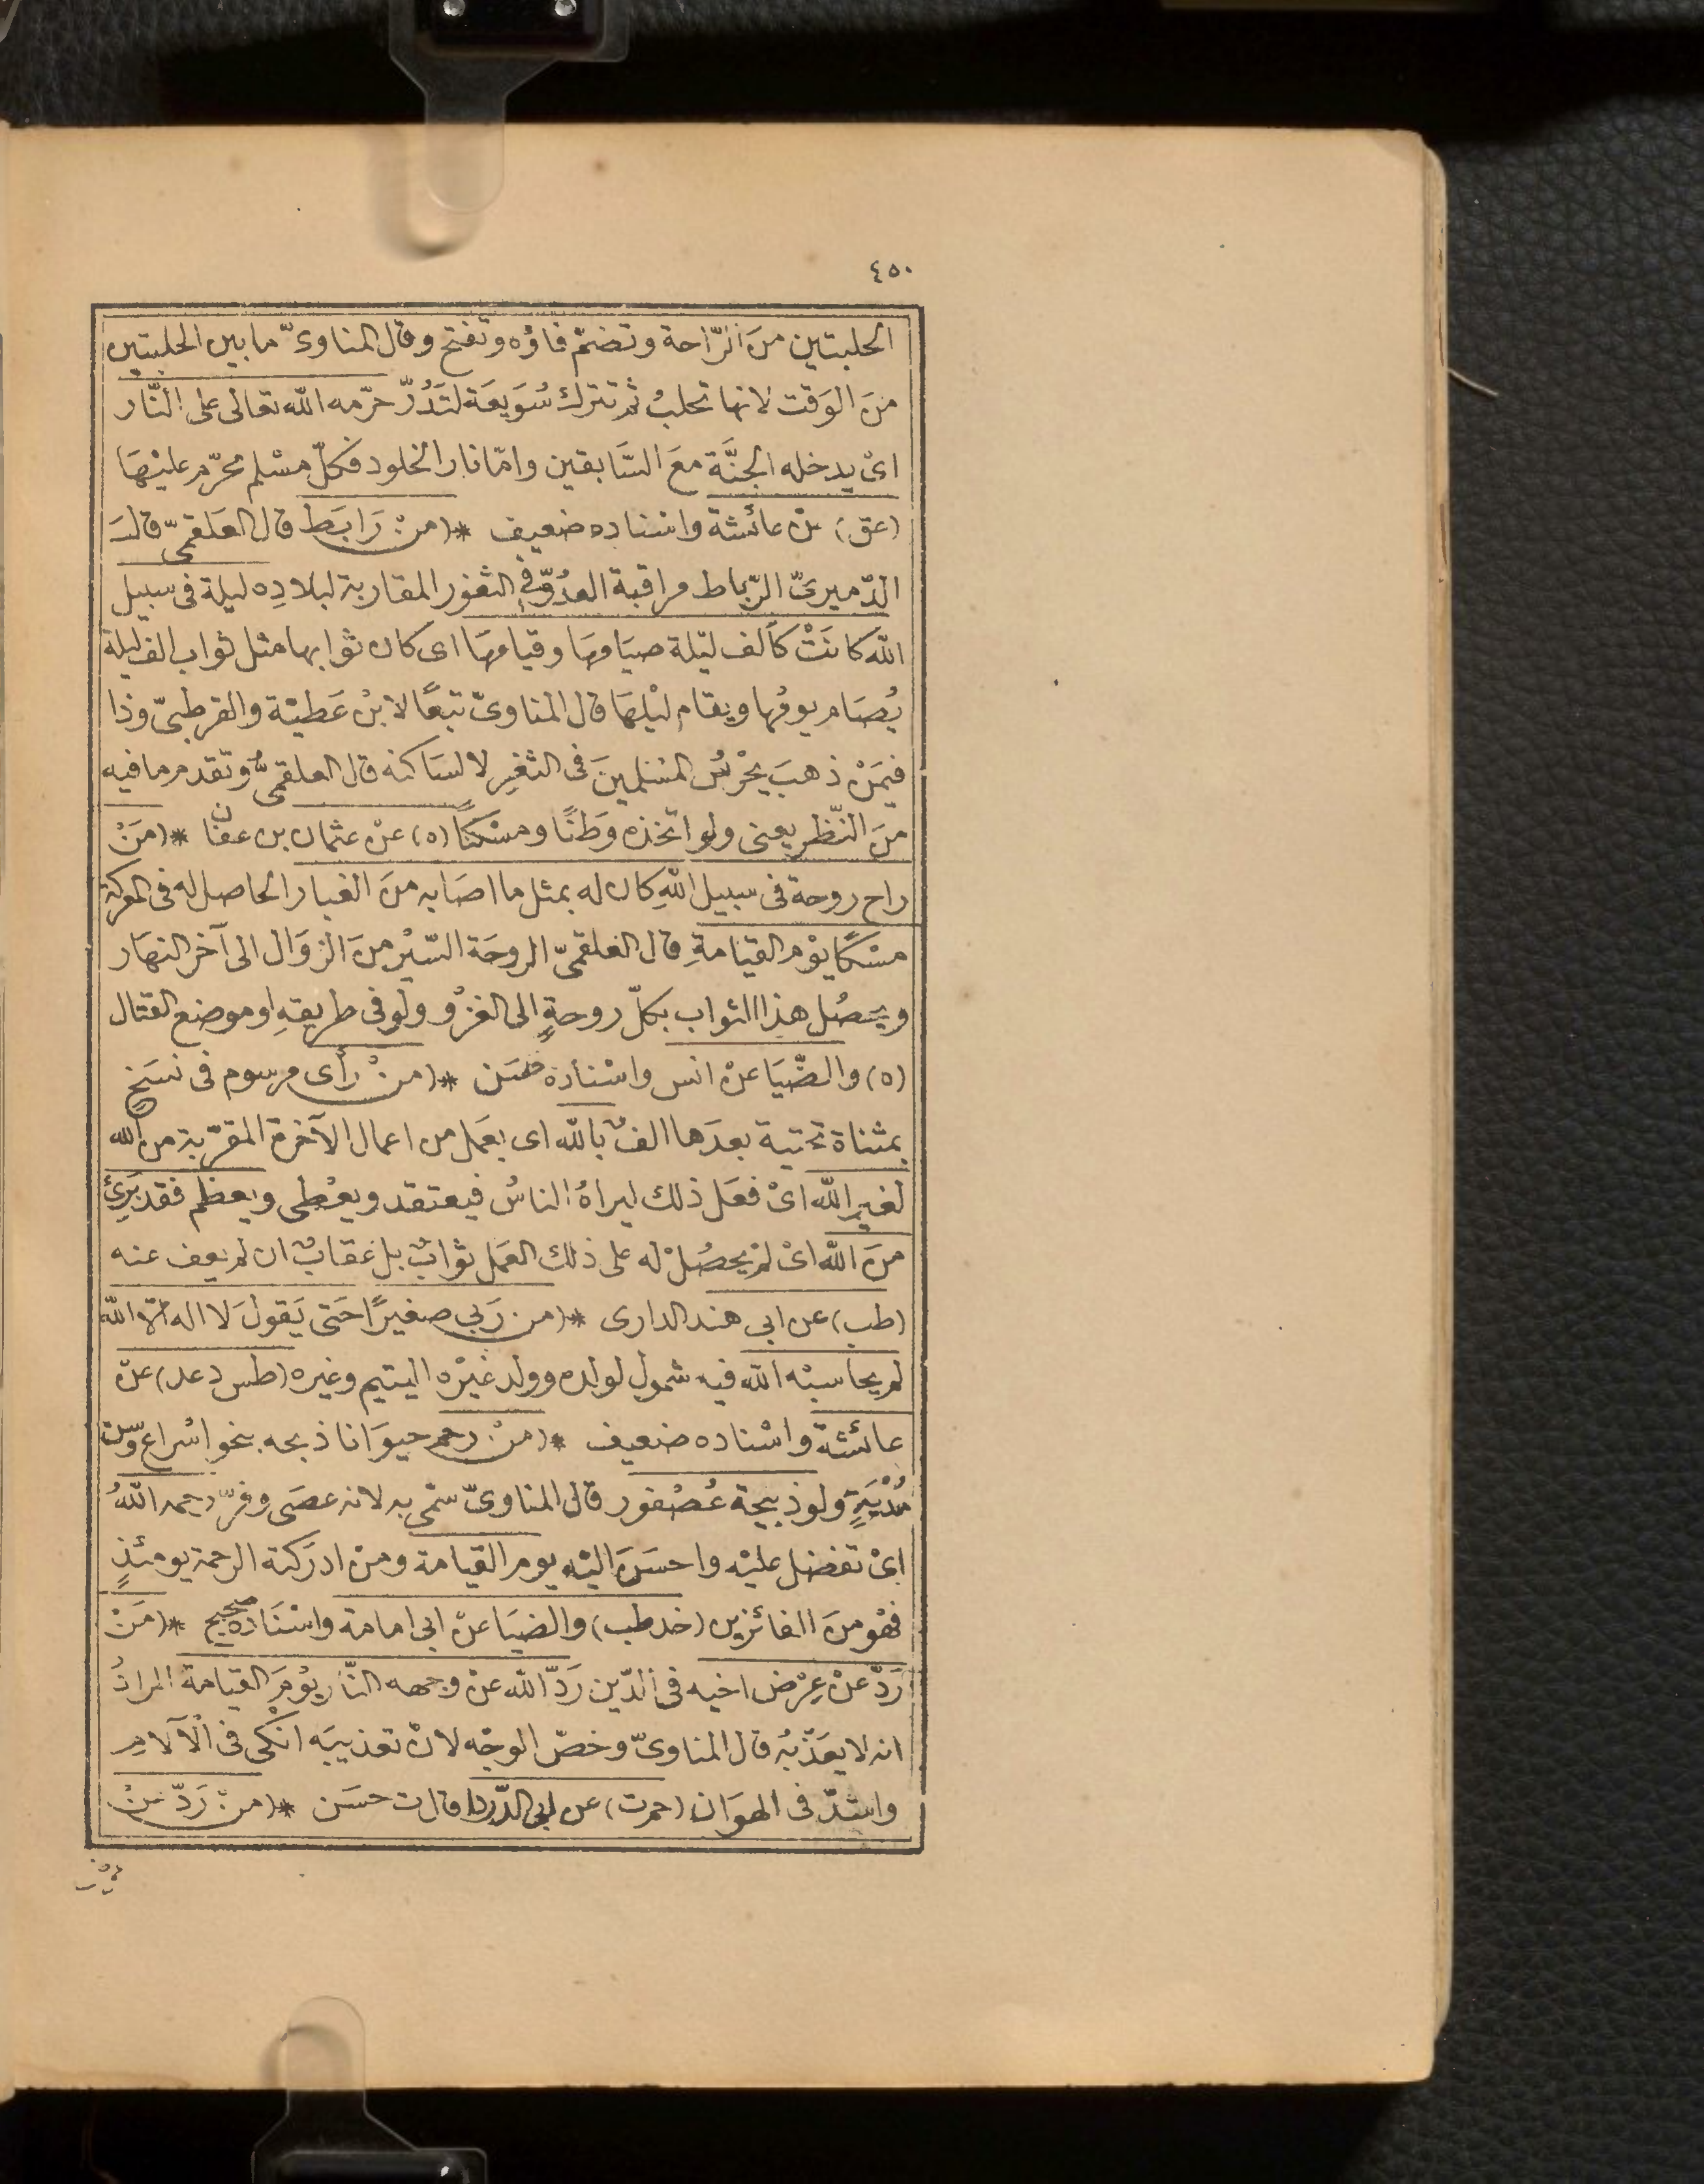 ٤٥٠
الحلبتين منَ الرّاحة وتضمّ فاؤه وتفتح وقال المناوىّ ما بين الحلبتين
منَ الوَقت لانها تحلبُ ثم تترك سُوَيعَة لتَدُرّ حرّمه الله تعالى على النّار
اىْ يدخله الجنَّة معَ السَّابقين وامّا نار الخلود فكلّ مسْلم محرّم عليْهَا
(عق) عنْ عائشة واسْناده ضعيف * (منْ رَابَط قال العَلقمىّ قالَ
الدّميرىّ الرّباط مراقبة العدُوّ فى الثغور المقاربة لبلادِه ليلة فى سبيل
الله كانَتْ كألف ليْلة صيَامهَا وقيامهَا اى كان ثوابها مثل ثواب الف ليلة
يُصَام يومُها ويقام ليْلهَا قال المناوىّ تبعًا لابنْ عَطيّة والقرطبىّ وذا
فيمَنْ ذهبَ يحْرسُ المسْلمينَ فى الثغرِ لا لسَاكنه قال العلقمىُّ وتقدم ما فيه
منَ النّظر يعنى ولو اتخذه وَطنًا ومسْكنًا (ه) عنْ عثمان بن عفان * (مَنْ
راح روحة فى سبيل اللهِ كان له بمثل ما اصَابه منَ الغبار الحاصل له فى المعركة
مسْكًا يوْم القيَامةِ قال العَلقمىّ الروحَة السّيْر منَ الزوَال الى آخر النهَار
ويحصُل هذا الثواب بكلّ روحةٍ الى الغزْو ولو فى طريقهِ او موضع القتال
(ه) والضّيَا عنْ انس واسْناده حسَن * (منْ رأى مرسوم فى نسَخ
بمثناة تحتية بعدَها الفٌ بالله اى بعَمل من اعمال الآخرة المقرّبة من الله
لغير الله اىْ فعَل ذلك ليراهُ الناسُ فيعتقد ويعْطى ويعظم فقد بَرِئَ
منَ الله اىْ لمْ يحصُلْ له على ذلك العمَل ثوابٌ بل عقابٌ ان لم يعف عنه
(طب) عن ابى هند الدارى * (من رَبى صغيرًا حَتى يَقولَ لا اله الا الله
لم يحاسبْه الله فيه شمول لولده وولد غيْره اليتيم وغيره (طس دعد) عنْ
عائشة واسْناده ضعيف * (منْ رحم حيوَانا ذبحه بنحو اسْراع وسن
مُدْيَةٍ ولو ذبيحة عُصْفور قال المناوىّ سمّى به لانه عصَى وفرّ رحمه اللهُ
اىْ تفضل عليْه واحسَنَ اليْه يوم القيامة ومنْ ادرَكته الرحمة يومئذٍ
فهْو منَ الفائزين (خد طب) والضيَا عنْ ابى امامة واسْنَاده صحيح * (مَنْ
رَدّ عنْ عِرْض اخيه فى الدّين رَدّ الله عنْ وجهه النّار يوْمَ القيامة المرادُ
انه لا يعَذّبهُ قال المناوىّ وخصّ الوجْه لانْ تعذيبَه انْكى فى الْآلامِ
واشدّ فى الهوَان (حم ت) عن ابى الدّردا قال ت حسَن * (منْ رَدّ عنْ